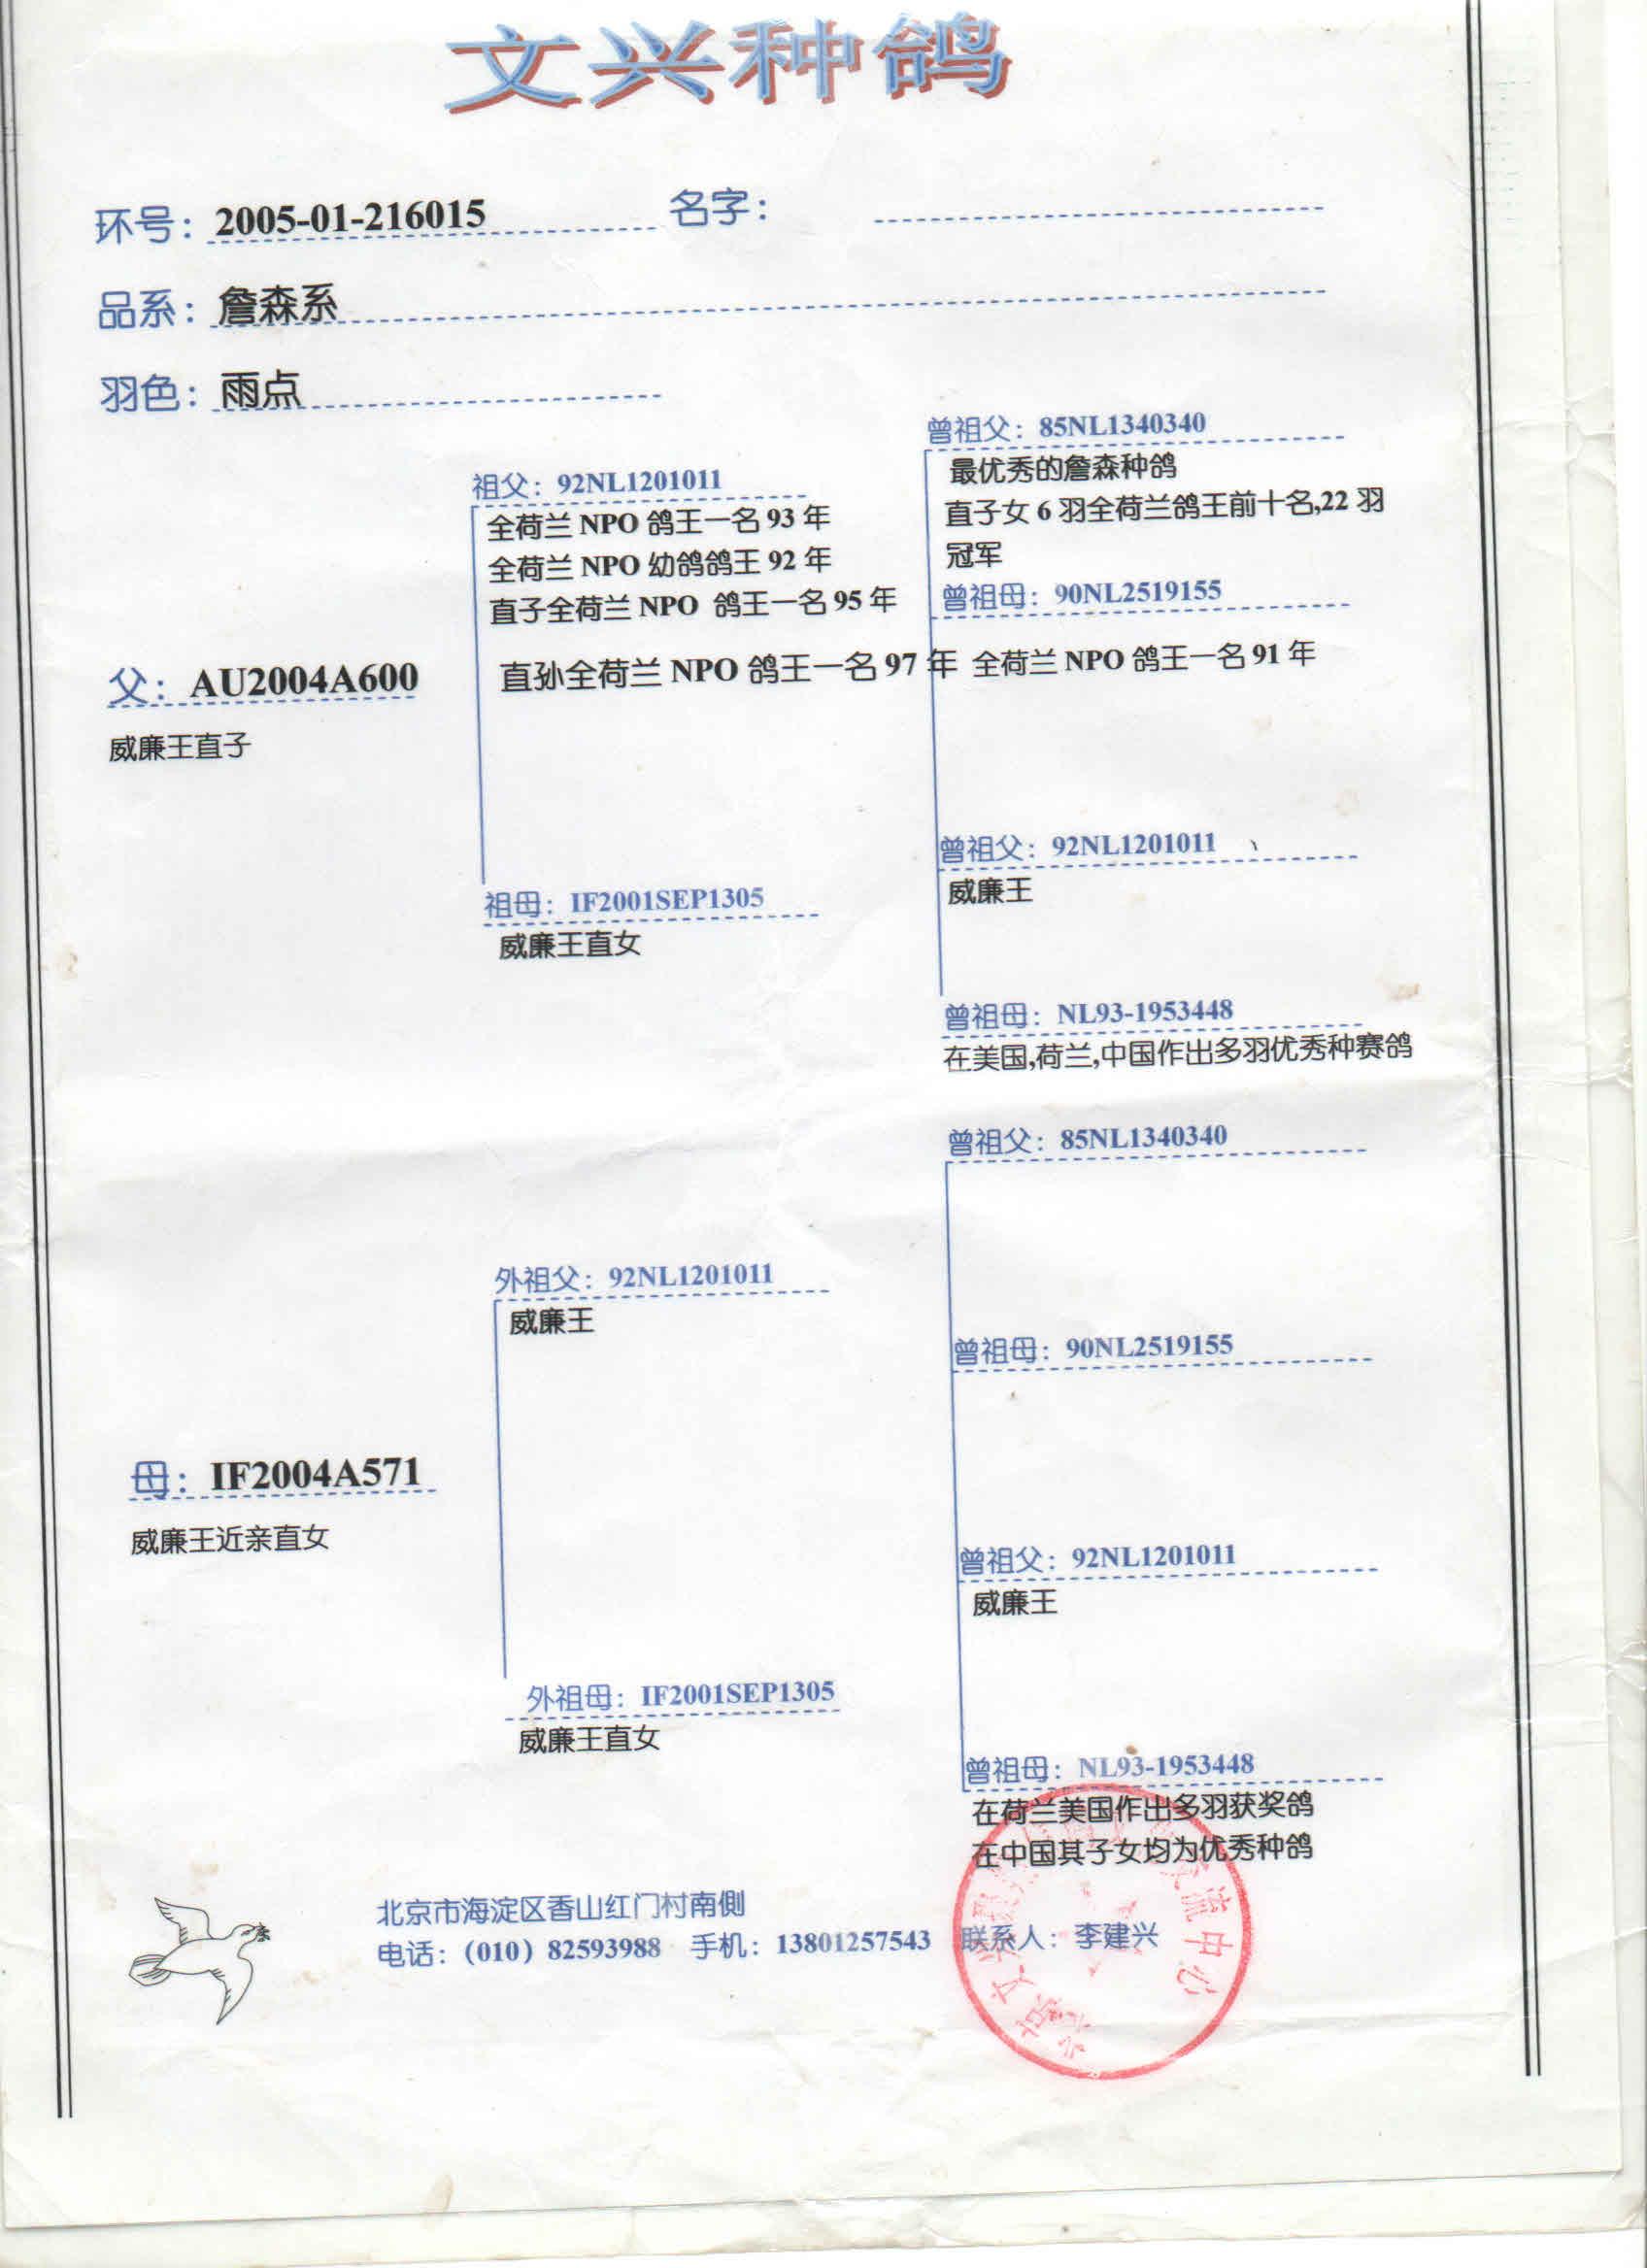 文兴种鸽
环号：2005-01-216015 名字：
品系：詹森系
羽色：雨点
曾祖父：85NL1340340
最优秀的詹森种鸽
直子女6羽全荷兰鸽王前十名,22羽
冠军
祖父：92NL1201011
全荷兰NPO鸽王一名93年
全荷兰NPO幼鸽鸽王92年
直子全荷兰NPO 鸽王一名95年
直孙全荷兰NPO鸽王一名97年
曾祖母：90NL2519155
全荷兰NPO鸽王一名91年
父：AU2004A600
威廉王直子
曾祖父：92NL1201011
威廉王
祖母：IF2001SEP1305
威廉王直女
曾祖母：NL93-1953448
在美国,荷兰,中国作出多羽优秀种赛鸽
曾祖父：85NL1340340
外祖父：92NL1201011
威廉王
曾祖母：90NL2519155
母：IF2004A571
威廉王近亲直女
曾祖父：92NL1201011
威廉王
外祖母：IF2001SEP1305
威廉王直女
曾祖母：NL93-1953448
在荷兰美国作出多羽获奖鸽
在中国其子女均为优秀种鸽
北京市海淀区香山红门村南侧
电话：（010）82593988 手机：13801257543 联系人：李建兴